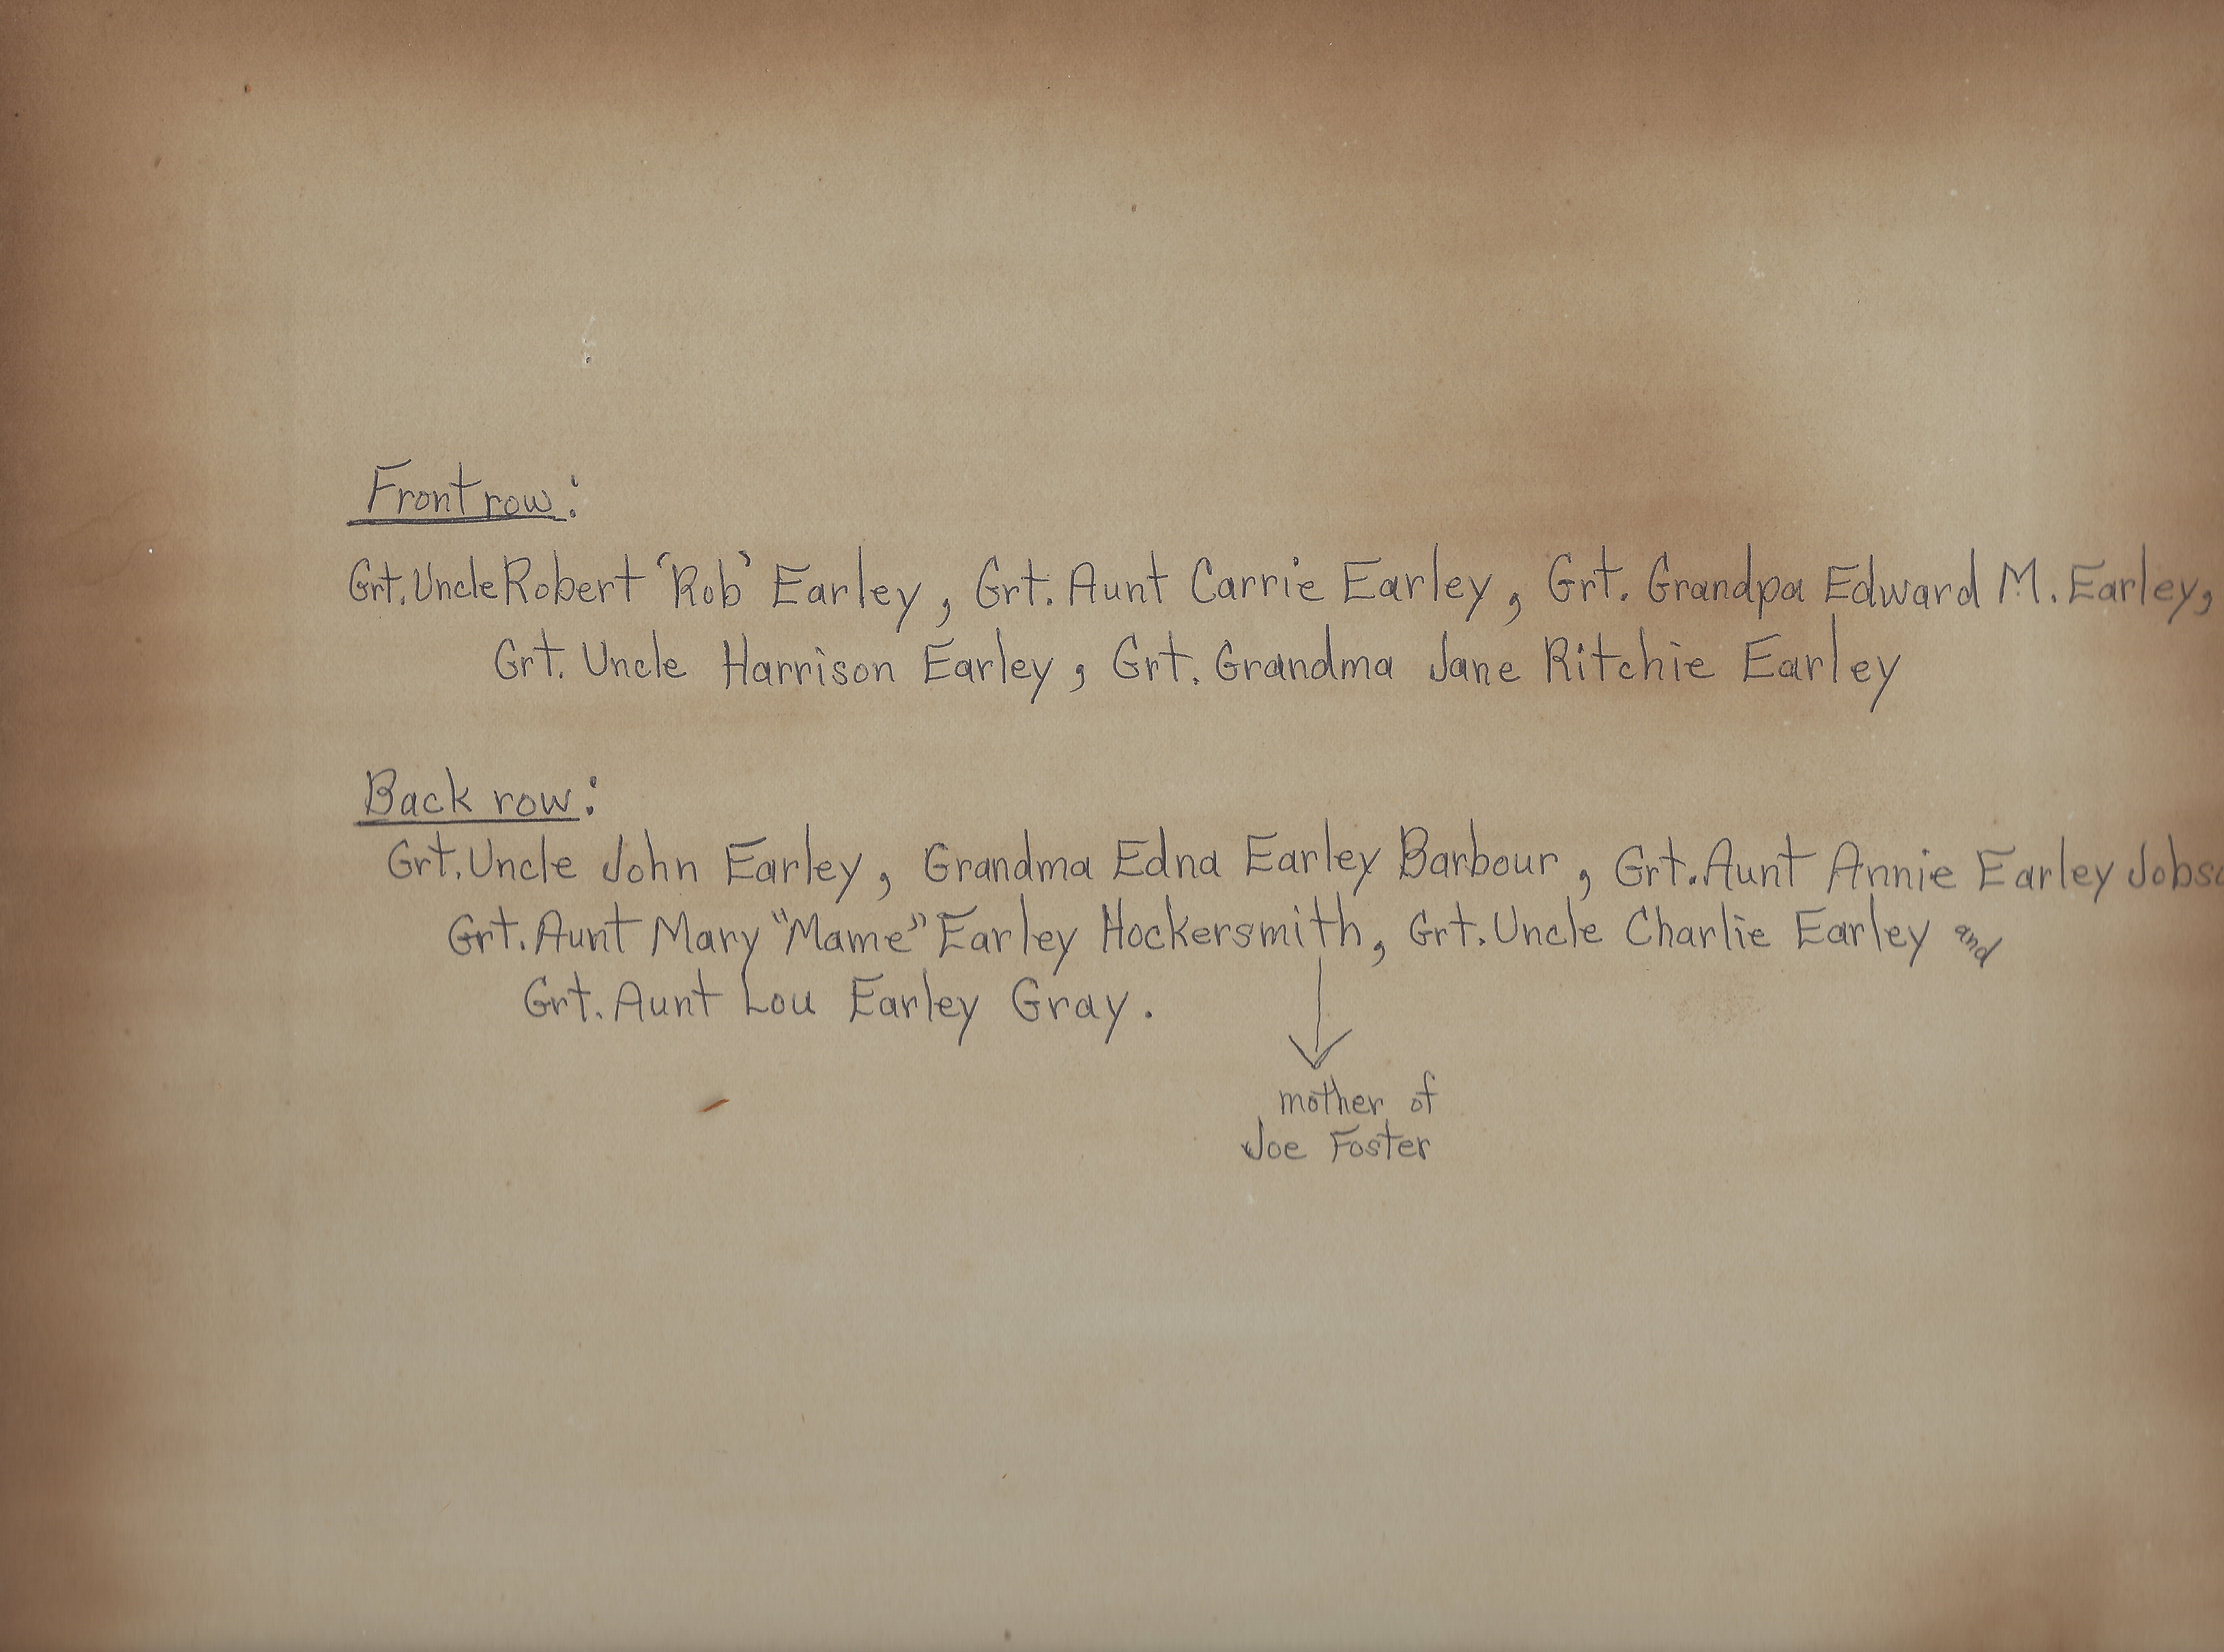 Front row:
Grt. Uncle Robert 'Rob' Earley, Grt. Aunt Carrie Earley, Grt. Grandpa Edward M. Earley,
Grt. Uncle Harrison Earley, Grt. Grandma Jane Ritchie Earley
Back row:
Grt. Uncle John Earley, Grandma Edna Earley Barbour, Grt. Aunt Annie Earley
Grt. Aunt Mary "Mame" Earley Hockersmith, Grt. Uncle Charlie Earley and
Grt. Aunt Lou Earley Gray.
mother of
Joe Foster